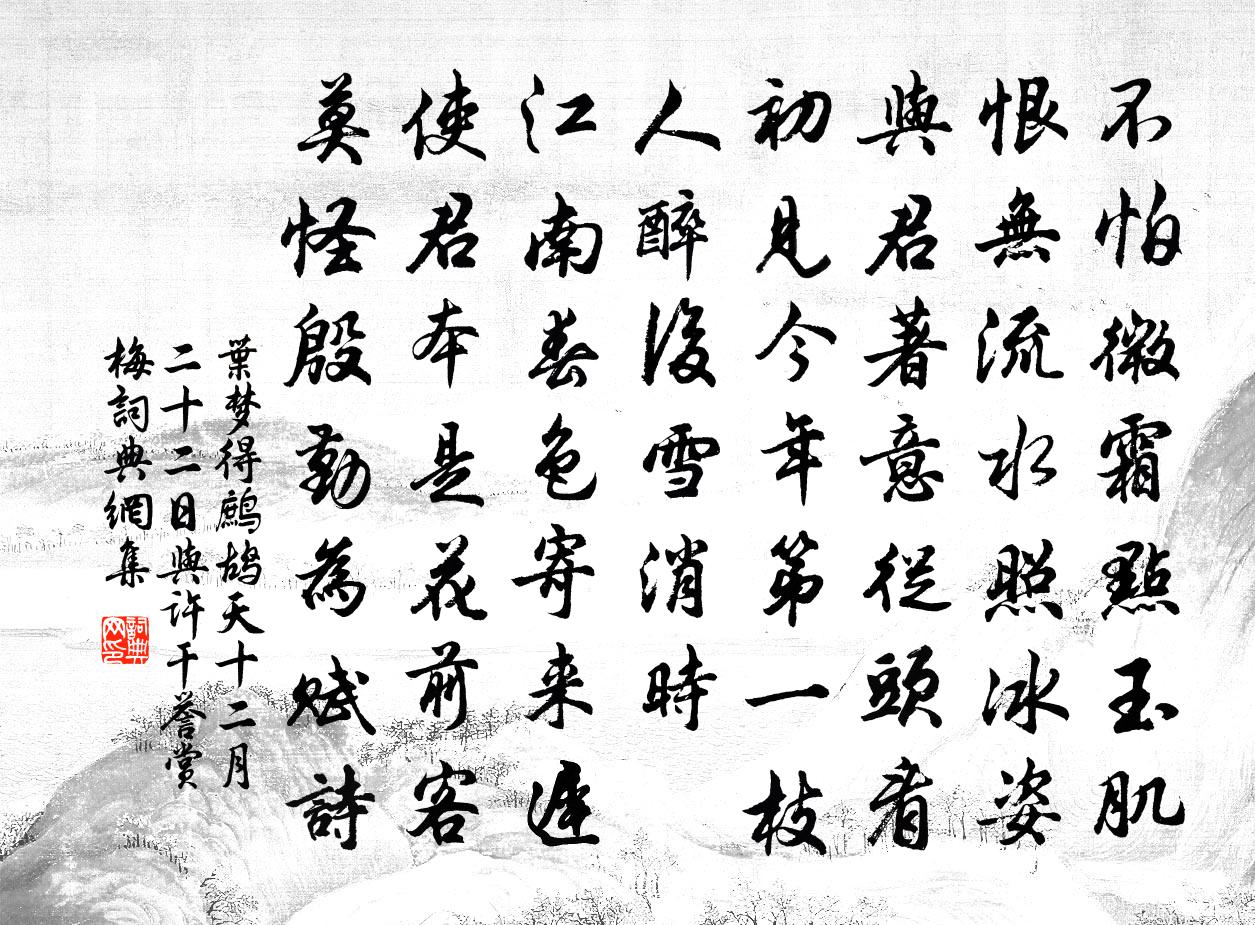 不怕微霜點玉肌
恨無流水照冰姿
與君著意從頭看
初見今年第一枝
人醉後雪消時
江南春色寄来遲
使君本是花前客
莫怪殷勤為賦詩
葉梦得鷓鴣天十二月
二十二日與許干譽賞
梅詞典網集
詞典网印